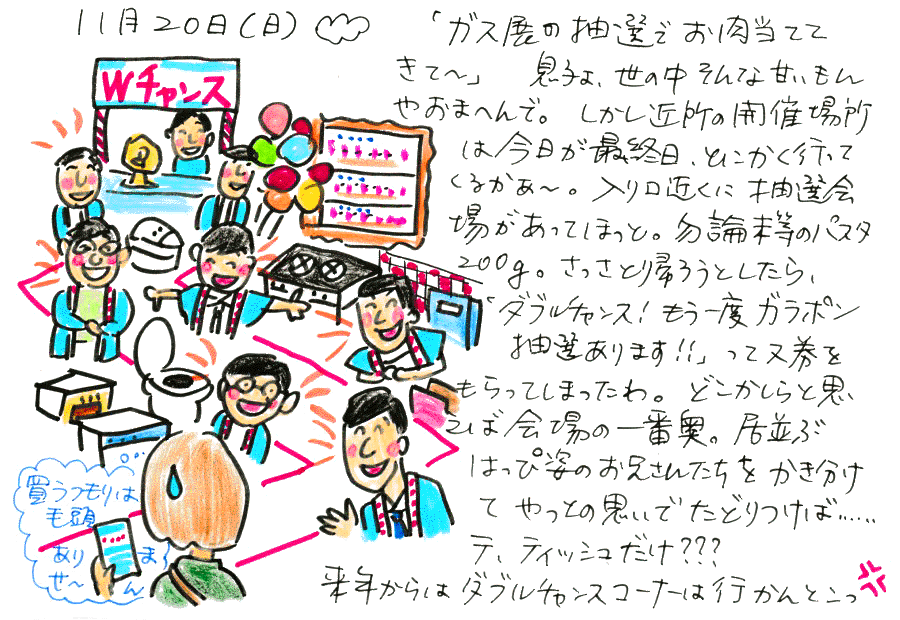 11月20日(日)
「ガス展の抽選でお肉当てて
きて〜」 息子よ、世の中そんな甘いもん
やおまへんで。しかし近所の開催場所
は今日が最終日、とにかく行って
くるかぁ〜。入り口近くに抽選会
場があってほっと。勿論末等のパスタ
200g。さっさとり帰ろうとしたら、
「ダブルチャンス!もう一度ガラポン
抽選あります!!」って又券を
もらってしまったわ。どこかしらと思
えば会場の一番奥。居並ぶ
はっぴ姿のお兄さんたちをかき分け
てやっとの思いでたどりつけば……
テ、ティッシュだけ???
来年からはダブルチャンスコーナーは行かんとこっ
Wチャンス
買うつもりは
毛頭
ありま
せ〜ん